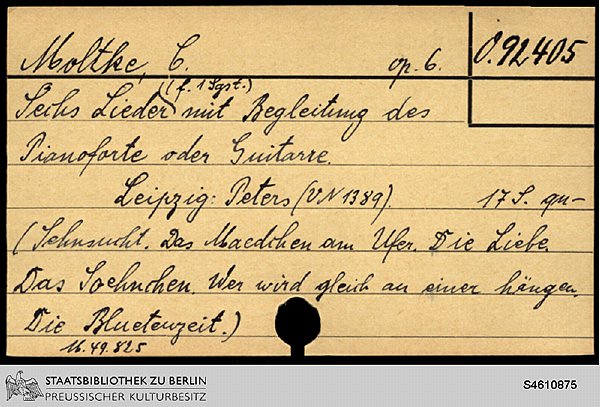 Moltke, C. op. 6. O.92405
(f. 1 Sgst.)
Sechs Lieder mit Begleitung des
Pianoforte oder Guitarre.
Leipzig: Peters (VN 1389). 17 S. qu-
(Sehnsucht. Das Maedchen am Ufer. Die Liebe.
Das Soehnchen. Wer wird gleich an einer hängen.
Die Bluetenzeit.)
M.49.825
STAATSBIBLIOTHEK ZU BERLIN
PREUSSISCHER KULTURBESITZ
S4610875